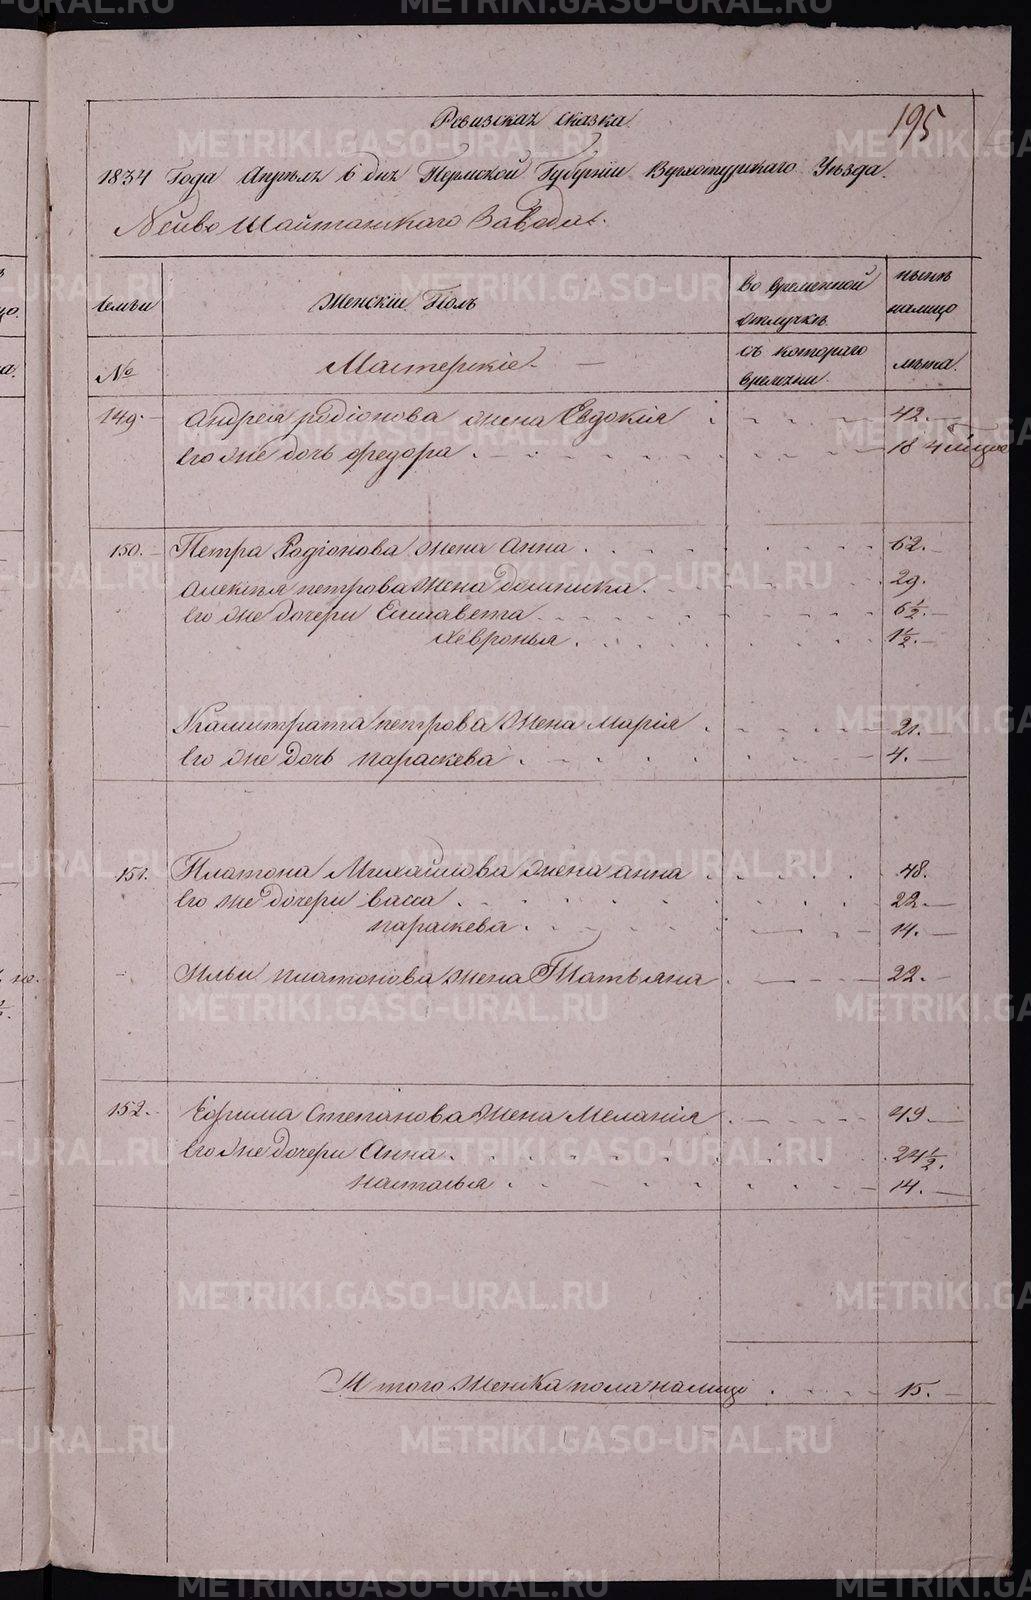 Ревизская сказка
195
1834 Года Апрѣля 6 дня Пермской Губернiи Верхотурскаго Уѣзда
Нейво Шайтанскаго Завода.
семьи
Женскiй Полъ
во временной отлучкѣ
нынѣ налицо
№
Мастерскiе
съ котораго времени
лѣта.
149. Андрея родiонова жена Евдокiя 42.
его же дочь федора 18
150. Петра Родiонова жена Анна 62.
алексѣя петрова жена домника 29.
его же дочери Елисавета 6½.
хевронья 1½.
Калистрата петрова жена марiя 21.
его же дочь параскева 4.
151. Платона Михайлова жена анна 48.
его же дочери васса 22.
параскева 14.
Ильи платонова жена Татьяна 22.
152. Ефрима степанова жена Меланiя 49
его же дочери Анна 24½.
наталья 14.
Итого женска пола налицо 15.
METRIKI.GASO-URAL.RU